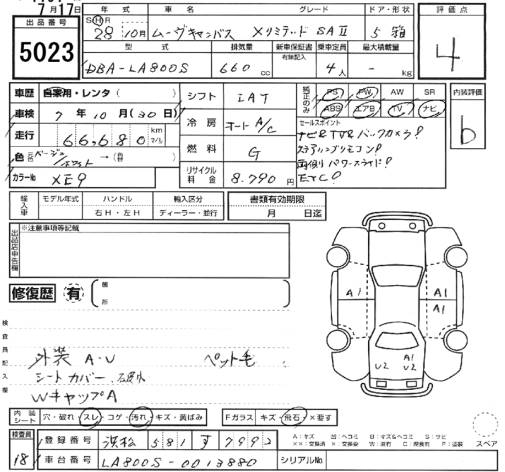 7月17日
出品番号
5023
年式 車名 グレード ドア・形状
SHR
28年 10月 ムーヴキャンバス Xリミテッド SAⅡ 5 箱
型式 排気量 新車保証書 乗車定員 最大積載量
有無記入
DBA-LA800S 660cc 4人 - kg
評価点
4
車歴 自家用・レンタ ( )
車検 7年 10月 (30日)
走行 66,680 km マイル
色 (元色) ベージュ/ホワイト → (替色)
カラーNo XE9
シフト IAT
冷房 オートA/C
燃料 G
リサイクル料金 8,790円
純正のみ PS PW AW SR
ABS エアB TV ナビ
セールスポイント
ナビ&TV&バックカメラ!
ステアリングリモコン!
両側パワースライド!
ETC!
内装評価
b
輸入車 モデル年式 ハンドル 輸入区分
右H・左H ディーラー・並行
書類有効期限
月 日迄
出品店申告欄
※注意事項等記載
修復歴 有 箇所
検査員記入欄
外装 A・U ペット毛
シートカバー、
WキャップA
A1 A1
A1
U2 A1 U2
内装シート 穴・破れ・スレ・コゲ・汚れ・キズ・黄ばみ
Fガラス キズ・飛石・×要す
A:キズ
スペア
検査員
18
登録番号 浜松 581 す 7992
車台番号 LA800S-0013880
シリアルNo